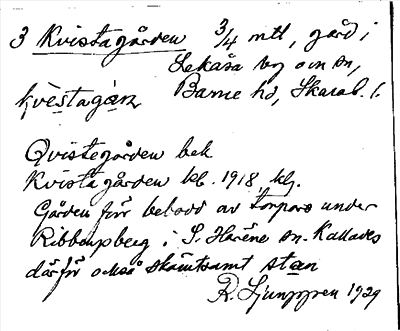 3 Kvistagården 3/4 mtl, gård i
Lekåsa by och sn,
kvèstagán Barne hd, Skarab. l.
Qvistegården bek
Kvistagården kb. 1918, klj.
Gården förr bebodd av torpare under
Ribbingsberg i S. Härene sn. Kallades
därför också skämtsamt stan
R. Ljunggren 1929